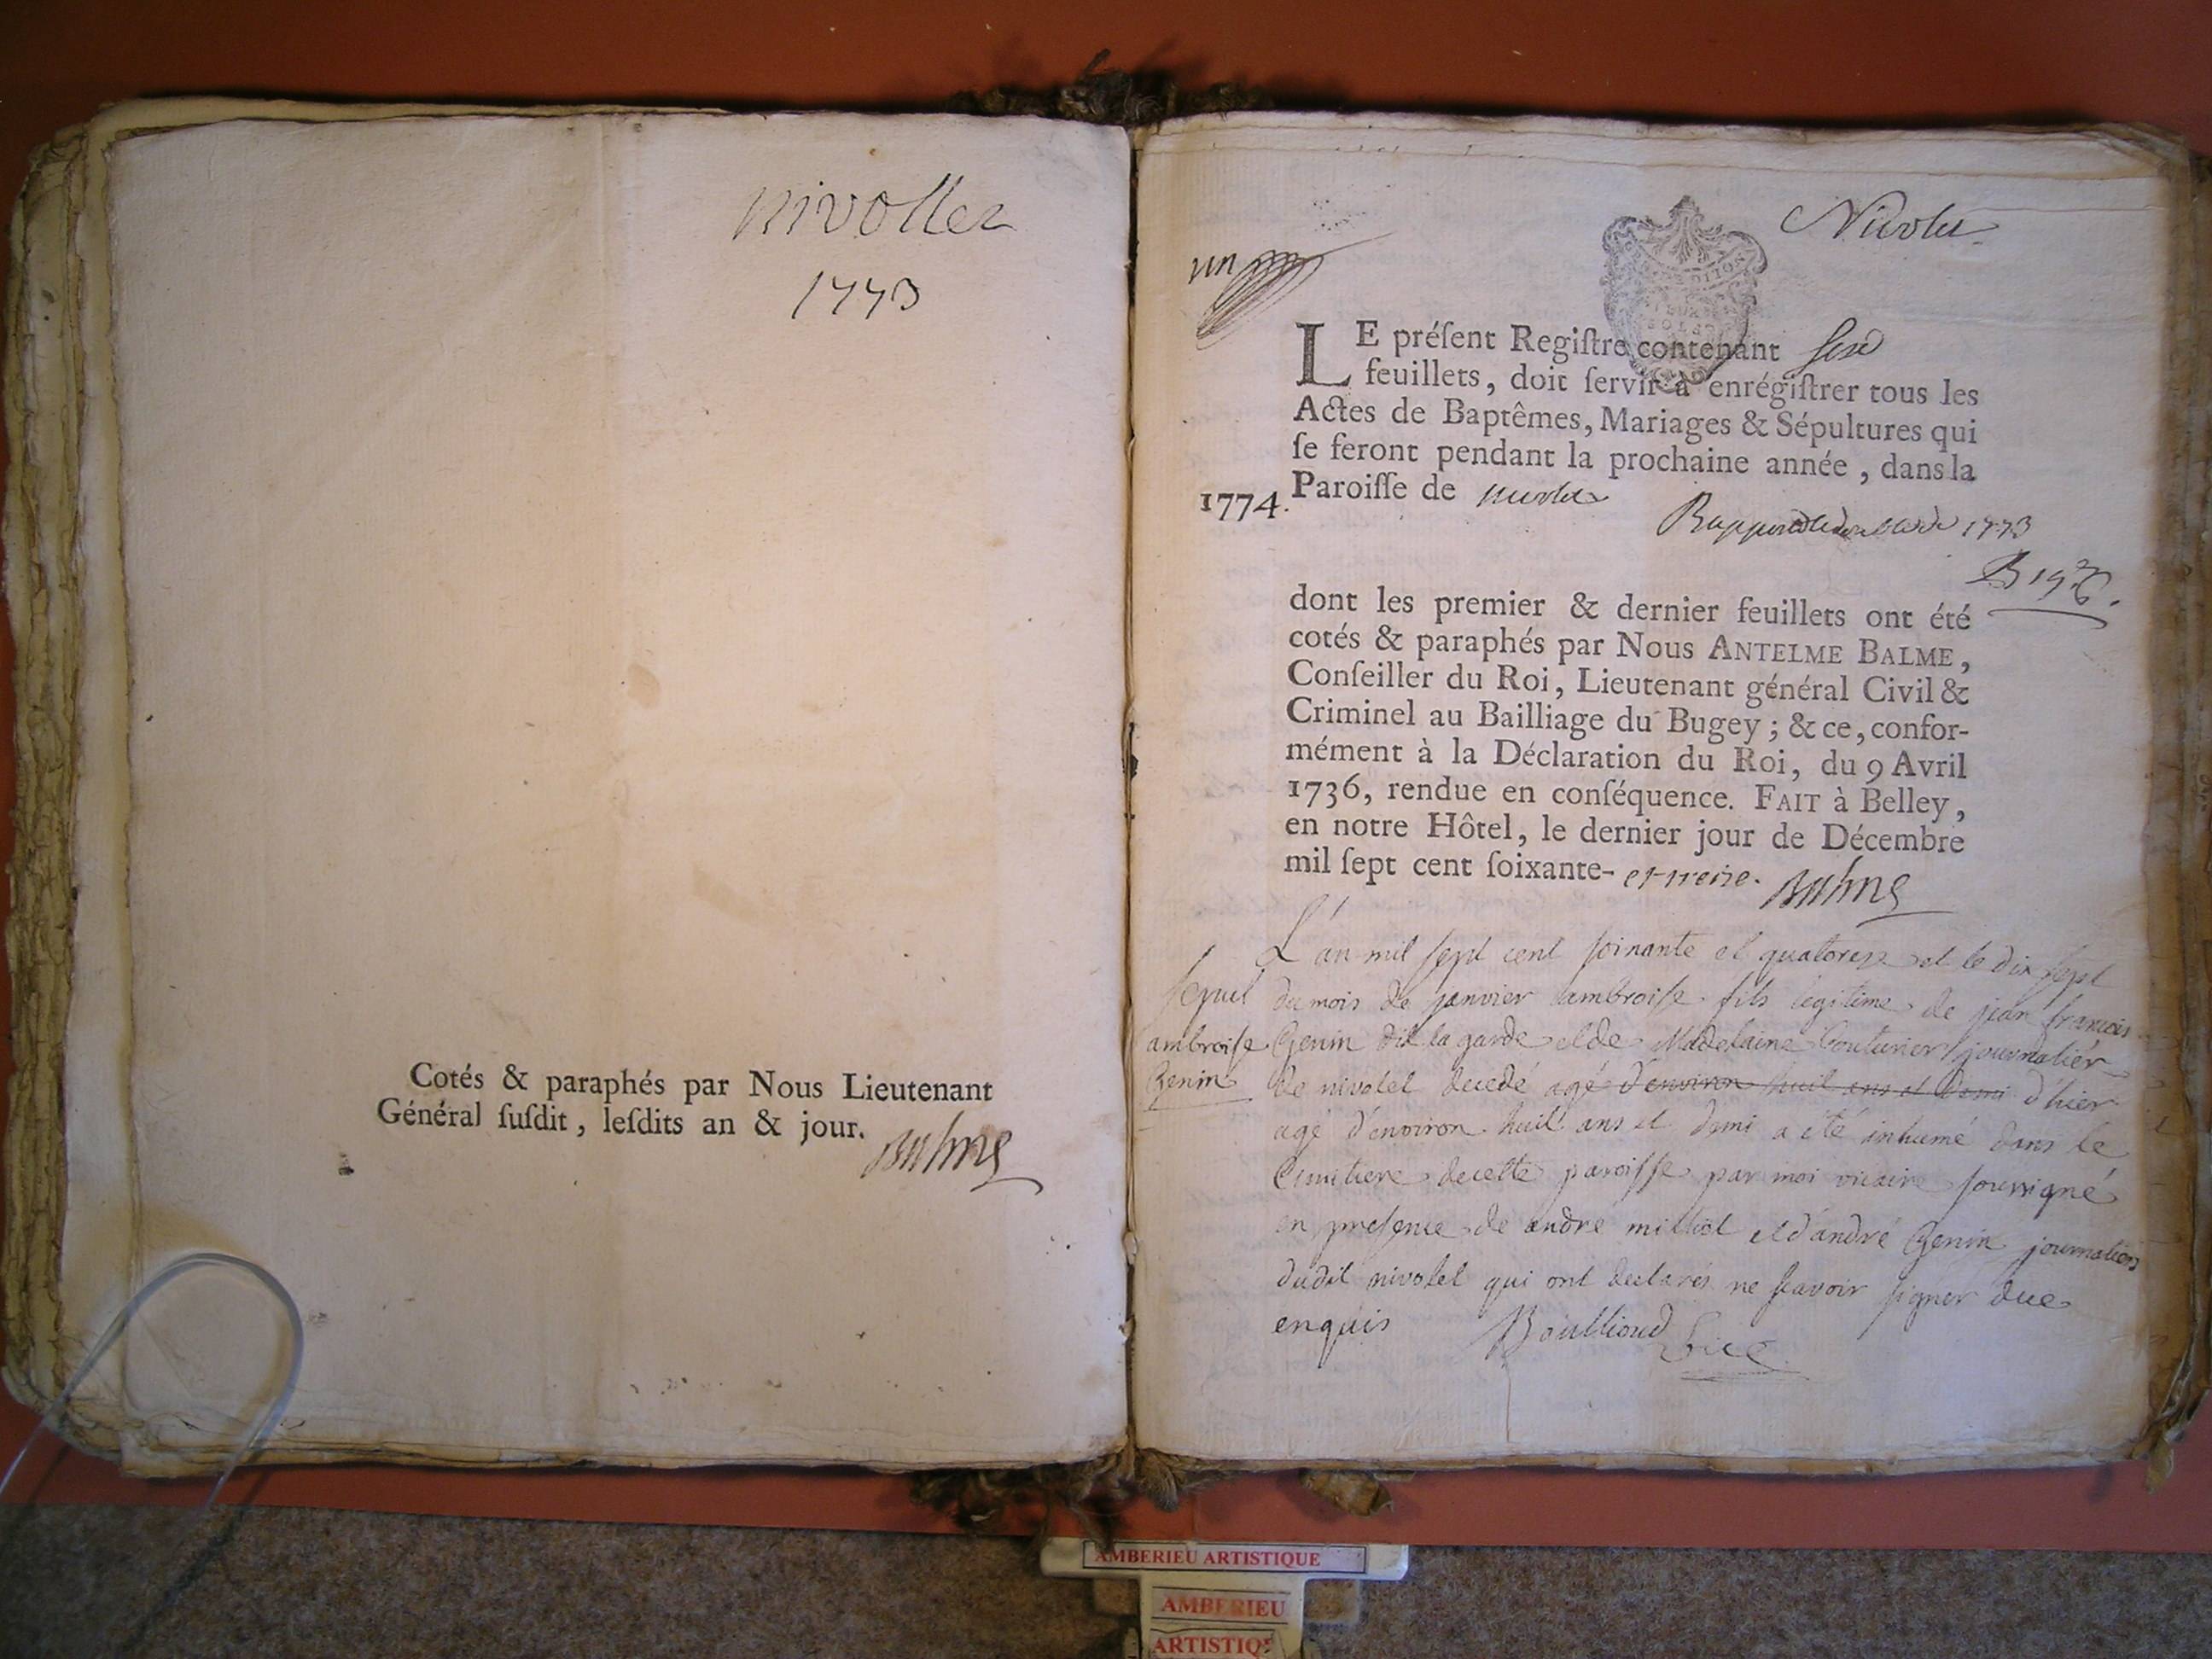 nivollet
1773
Cotés & paraphés par Nous Lieutenant
Général ſuſdit, leſdits an & jour.
Balme
Nivolet
un
LE préſent Regiſtre contenant
feuillets, doit ſervir à enrégiſtrer tous les
Actes de Baptêmes, Mariages & Sépultures qui
ſe feront pendant la prochaine année, dans la
1774. Paroiſſe de nivolet
1773
dont les premier & dernier feuillets ont été
cotés & paraphés par Nous ANTELME BALME,
Conſeiller du Roi, Lieutenant général Civil &
Criminel au Bailliage du Bugey; & ce, confor-
mément à la Déclaration du Roi, du 9 Avril
1736, rendue en conſéquence. FAIT à Belley,
en notre Hôtel, le dernier jour de Décembre
mil ſept cent ſoixante- et treize. Balme
L'an mil ſept cent ſoixante et quatorze et le dix ſept
du mois de janvier ambroiſe fils legitime de jean francois
Genin dit la garde et de Madelaine Couturier journalier
de nivolet decedé agé d'environ huit ans et demi d'hier
agé d'environ huit ans et demi a été inhumé dans le
Cimitiere de cette paroiſſe par moi vicaire ſouſsigné
en preſence de andre milliet et d'andré Genin journaliers
dudit nivolet qui ont declarés ne ſcavoir ſigner de ce
enquis Boullioud Vic
ſepul
ambroiſe
Genin
AMBERIEU ARTISTIQUE
AMBERIEU
ARTISTIQ